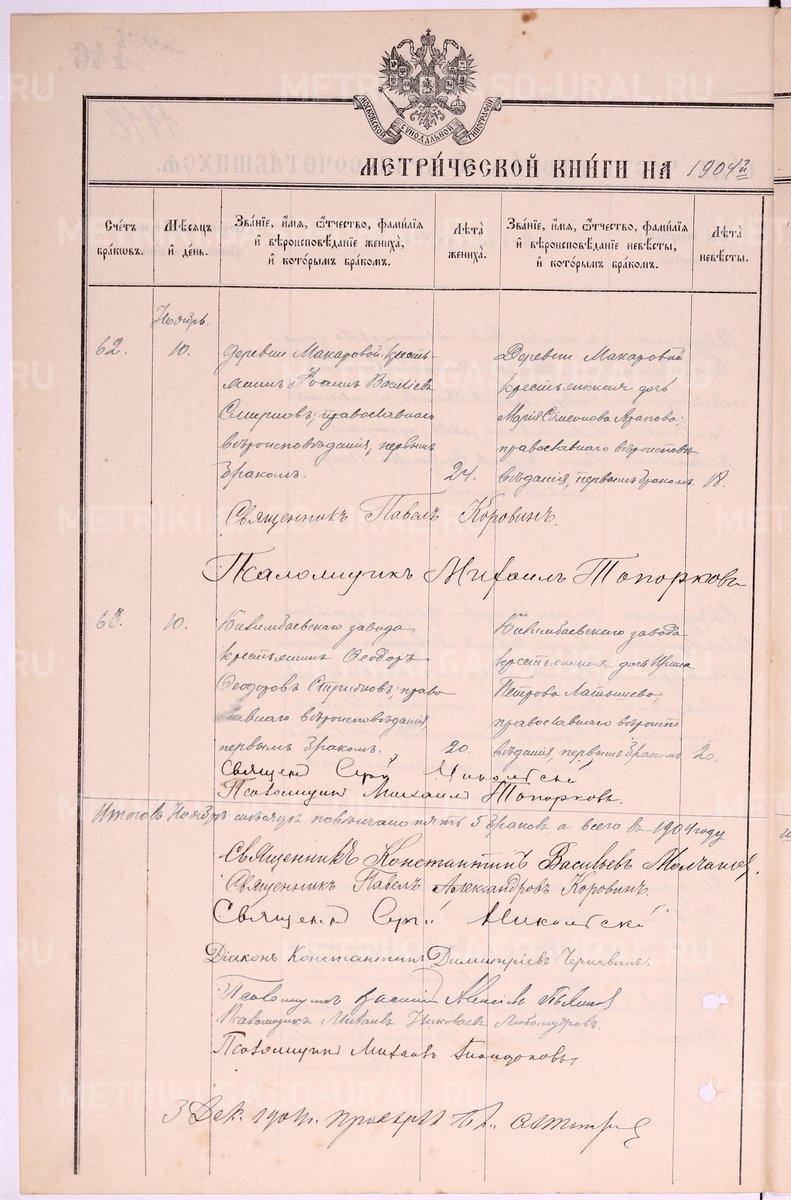 МОСКОВСКОЙ СѴНОДАЛЬНОЙ ТИПОГРАФІИ
МЕТРИЧЕСКОЙ КНИГИ НА 1904 й
Счетъ браковъ.
Мѣсяцъ и день.
Званіе, имя, отчество, фамилія и вѣроисповѣданіе жениха, и которымъ бракомъ.
Лѣта жениха.
Званіе, имя, отчество, фамилія и вѣроисповѣданіе невѣсты, и которымъ бракомъ.
Лѣта невѣсты.
Ноябрь.
62. 10.
Деревни Макаровой кресть-
янинъ Іоаннъ Васильевъ
Смирновъ; православнаго
вѣроисповѣданія, первымъ
бракомъ. 24.
Деревни Макаровой
крестьянская дочь
Марія Симеонова Арапова;
православнаго вѣроиспов-
ѣданія, первымъ бракомъ. 18.
Священникъ Павелъ Коровинъ.
Псаломщикъ Михаилъ Топорковъ
63. 10.
Билимбаевскаго завода
крестьянинъ Ѳеодоръ
Ѳеодоровъ; право
славнаго вѣроисповѣданія,
первымъ бракомъ. 20.
Билимбаевскаго завода
крестьянская дочь
Петрова Латышева,
православнаго вѣроиспо
вѣданія, первымъ бракомъ 20.
Священ Никольскій
Псаломщикъ Михаилъ Топорковъ.
Итого въ Ноябрѣ мѣсяцѣ повѣнчано пять 5 браковъ а всего въ 1904 году
Священникъ Константинъ Васильевъ Молчановъ.
Священникъ Павелъ Александровъ Коровинъ.
Священник Сергій Никольскій
Діаконъ Константинъ Димитріевъ
Псаломщикъ Василій
Псаломщикъ Михаилъ Николаевъ Любомудровъ.
Псаломщикъ Михаилъ Топорковъ
3 Дек. 1904 г.
METRIKI.GASO-URAL.RU